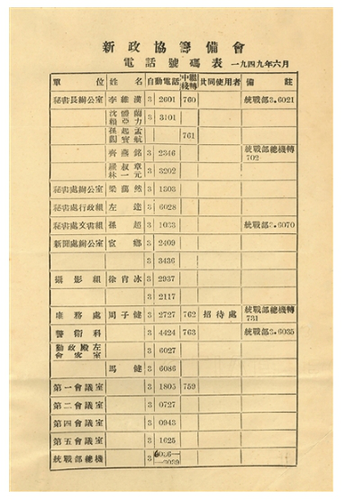 新政協籌備會
電話號碼表 一九四九年六月
單位 姓名 自動電話 中繼綫轉 共同使用者 備註
秘書長辦公室 李維漢 3 2601 760 統戰部3.6021
沈蘭 賴亞力 3 3101
孫起孟 閻寶航 761
齊燕銘 3 2346 統戰部總機轉702
羅叔章 林一元 3 3202
秘書處辦公室 梁藹然 3 1303
秘書處行政組 左達 3 6028
秘書處文書組 孫超 3 1033 統戰部3.6070
新聞處辦公室 宦鄉 3 2409
3 3436
攝影組 徐肖冰 3 2937
3 2117
庶務處 周子健 3 2727 762 招待處 統戰部總機轉731
警衛科 3 4424 763 統戰部3.6035
勤政殿左會客室 3 6027
馬健 3 6086
第一會議室 3 1805 759
第二會議室 3 0727
第四會議室 3 0943
第五會議室 3 1625
統戰部總機 3 6036—6039